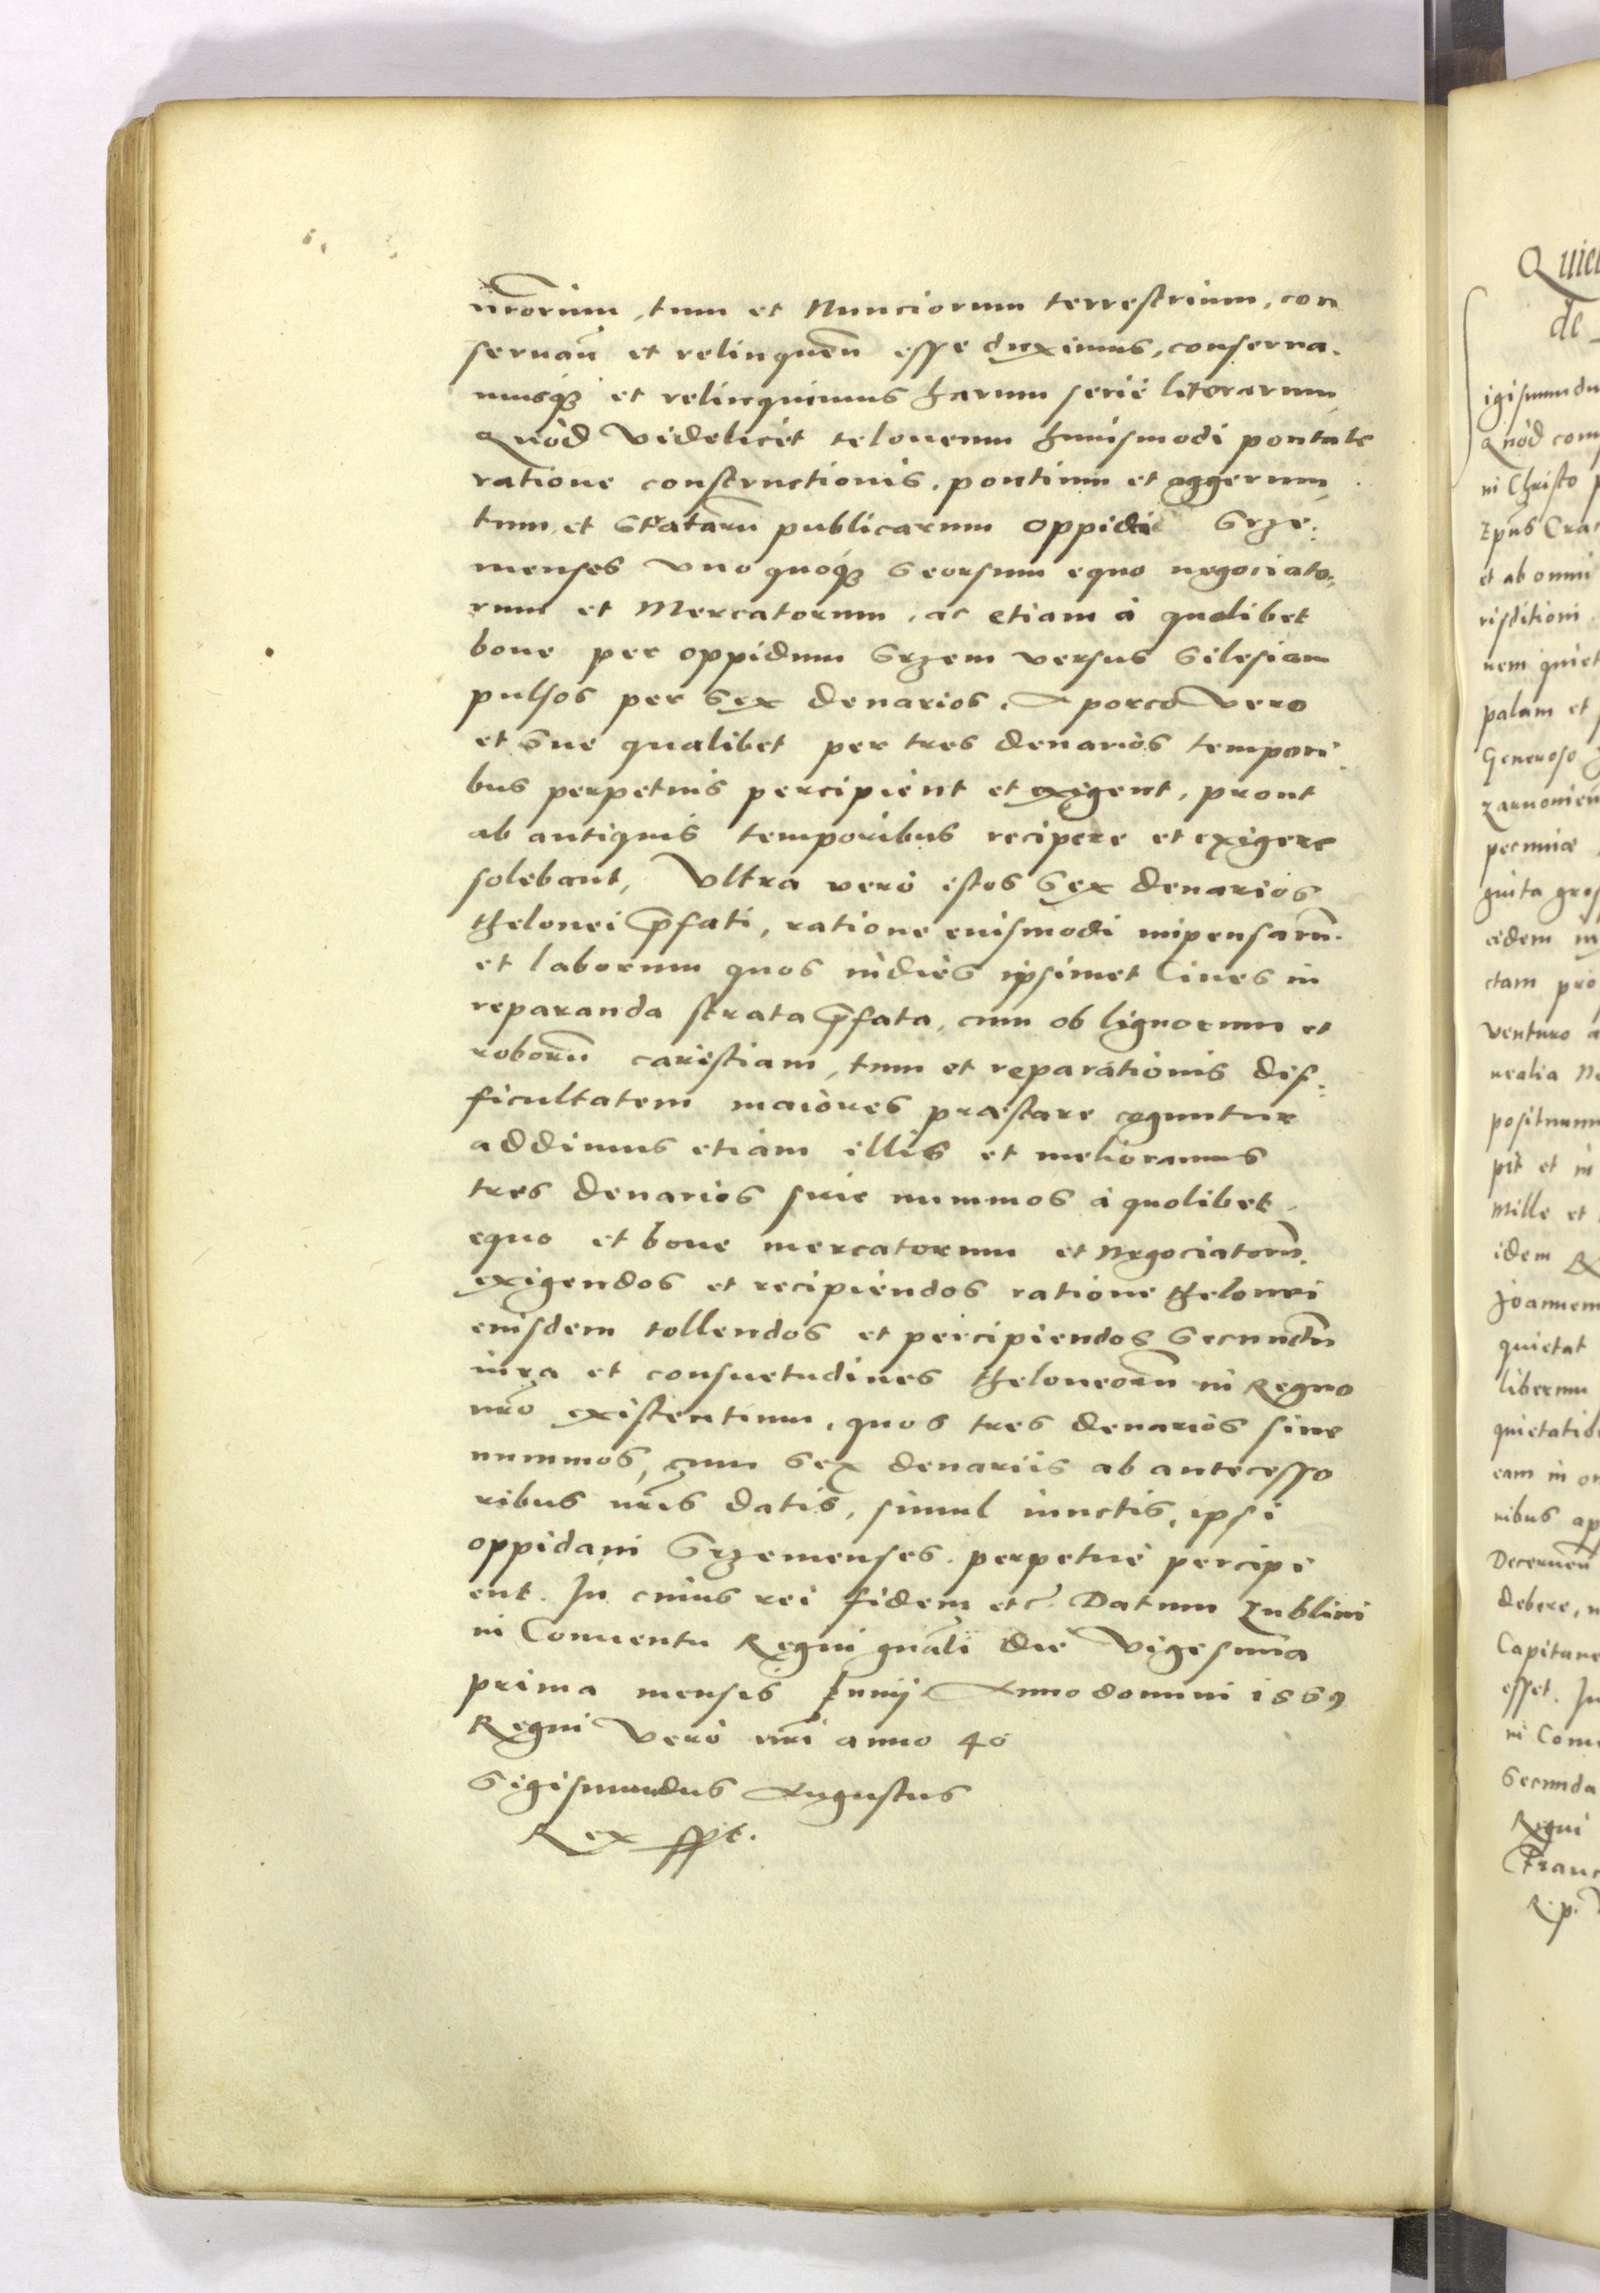 nrorum, tum et Nunciorum terrestrium, con
seruan̄ et relinquen̄ esse duximus, conserua.
musqȝ et relinquimus harum serie literarum
Quòd videlicet teloneum huiusmodi pontale
ratione constructionis, pontium et aggerum
tum et Stratarū publicarum oppidi Srze:
menses vno quoqȝ seorsum equo negociato:
rum et Mercatorum, ac etiam à quolibet
boue per oppidum Srzem versus Silesiam
pulsos per sex denarios. A porco vero
et sue qualibet per tres denarios tempori
bus perpetuis percipient et exigent, prout
ab antiquis temporibus recipere et exigere
solebant, Vltra verò istos sex denarios
thelonei p̄fati, ratione eiusmodi impensarū.
et laborum quos indies ipsimet Ciues in
reparanda strata p̄fata, cum ob lignorum et
roborū caristiam, tum et reparationis dif:
ficultatem maiores præstare coguntur
addimus etiam illis et melioramus
tres denarios siue nummos à quolibet
equo et boue mercatorum et Negociatorū.
exigendos et recipiendos ratione thelonei
eiusdem tollendos et percipiendos secundū
iura et consuetudines theloneorū in Regno
nr̄o existentium, quos tres denarios siue
nummos, cum sex denariis ab antecesso
ribus nr̄is datis, simul iunctis, ipsi
oppidani Srzemenses perpetuè percipi
ent. In cuius rei fidem etc̄. Datum Lublini
in Conuentu Regni gnāli die Vigesima
prima mensis Iunij Anno domini 1569
Regni verò nr̄i anno 40
Sigismundus Augustus
Rex sspt.
Quie
de
igismundu
Quòd com
in Christo p
Epūs Crac
et ab omni
risditioni
nem quiet
palam et
Generoso
pecuniæ
eidem in
ctam pro
venturo a
positnum
pit et in
Mille et
idem
Joannem
quietat
liberum
eam in om
nibus ap
Decernen̄
debere, n
Capitane
esset. In
in Conu
Secunda
Regni
Franc
R. p.